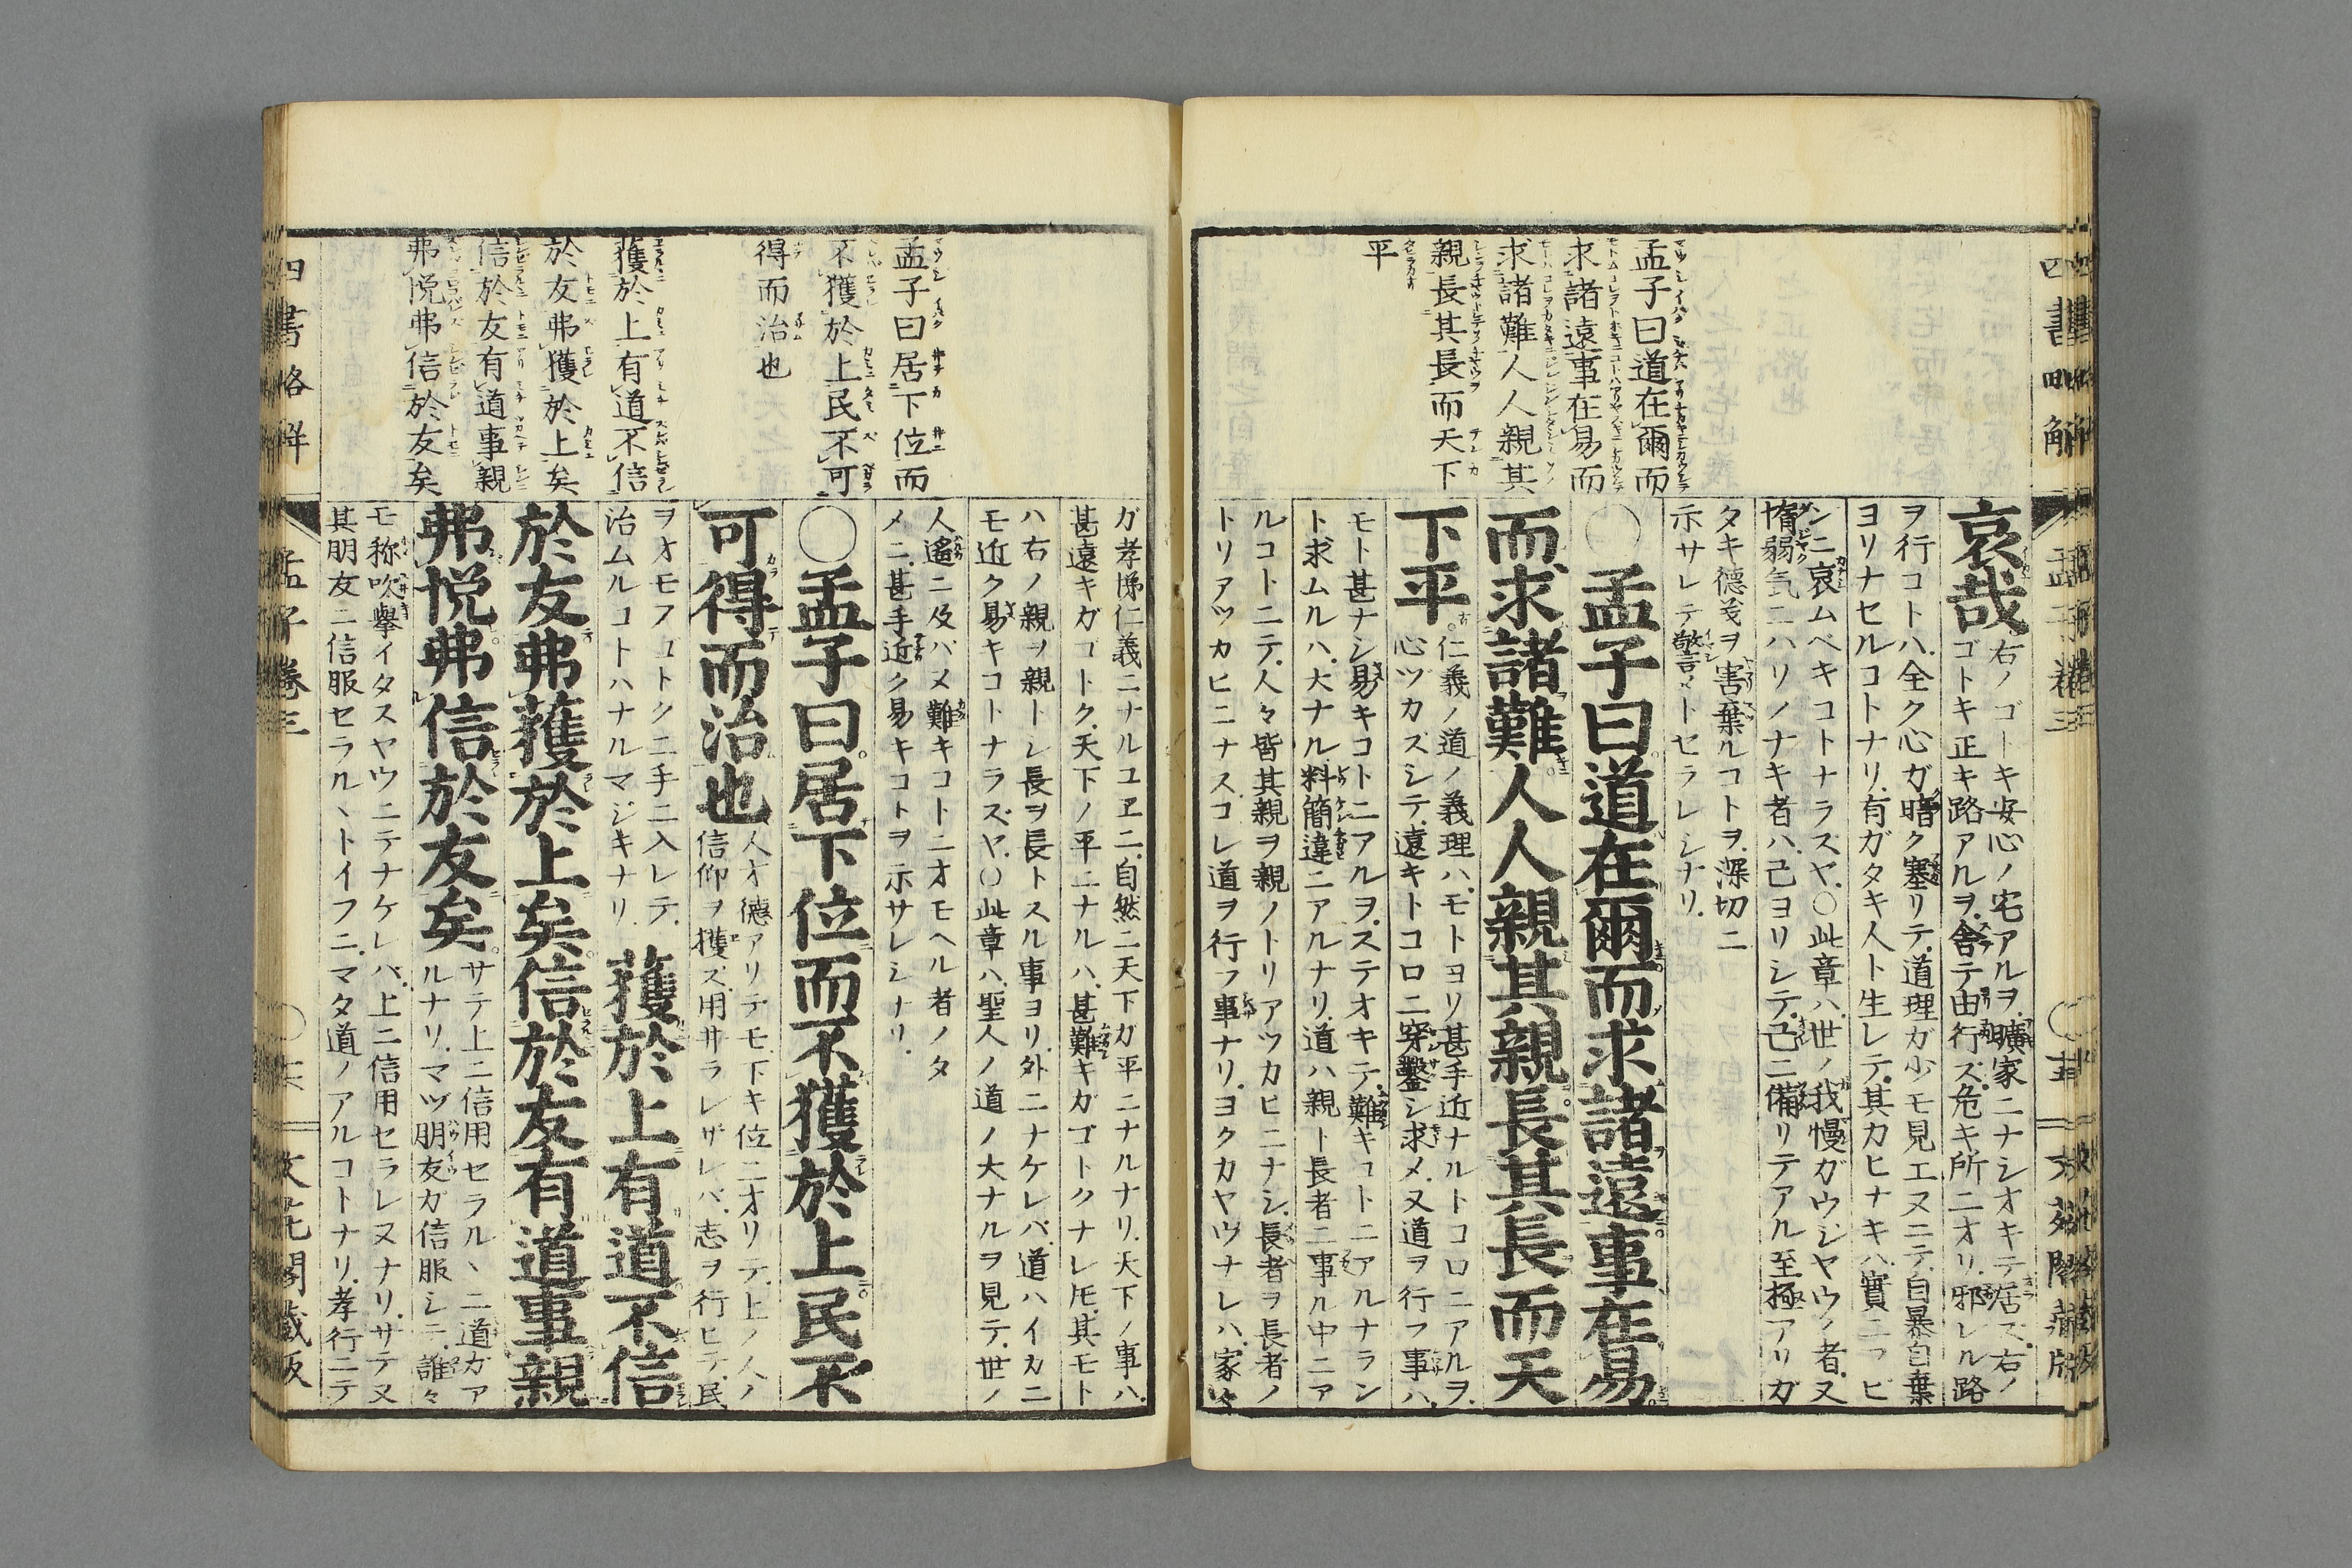 孟子曰道在爾而
求諸遠事在易而
求諸難人人親其
親長其長而天下
平
哀哉
右ノゴトキ安心ノ宅アルヲ曠家ニナシオキテ居ズ右ノ
ゴトキ正キ路アルヲ舍テ由行ズ危キ所ニオリ邪レル路
ヲ行コトハ全ク心ガ暗ク塞リテ道理ガ少モ見エヌニテ自暴自棄
ヨリナセルコトナリ有ガタキ人ト生レテ其カヒナキハ實ニフビ
ンニ哀ムベキコトナラズヤ〇此章ハ世ノ我慢ガウジヤウノ者又
惰弱気ニハリノナキ者ハ己ヨリシテ己ニ備リテアル至極アリガ
タキ德義ヲ害棄ルコトヲ深切ニ
示サレテ警メトセラレシナリ
〇孟子曰道在爾而求諸遠事在易
而求諸難人人親其親長其長而天
下平
仁義ノ道ノ義理ハモトヨリ甚手近ナルトコロニアルヲ
心ツカズシテ遠キトコロニ穿鑿シ求メ又道ヲ行フ事ハ
モト甚ナシ易キコトニアルヲステオキテ難キコトニアルナラン
ト求ムルハ大ナル料簡違ニアルナリ道ハ親ト長者ニ事ル中ニア
ルコトニテ人々皆其親ヲ親ノトリアツカヒニナシ長者ヲ長者ノ
トリアツカヒニナスコレ道ヲ行フ事ナリヨクカヤウナレハ家々
四書略解 孟子卷三 文苑閣藏版
孟子曰居下位而
不獲於上民不可
得而治也
獲於上有道不信
於友弗獲於上矣
信於友有道事親
弗悦弗信於友矣
ガ孝悌仁義ニナルユヱニ自然ニ天下ガ平ニナルナリ天下ノ事ハ
甚遠キガコトク天下ノ平ニナルハ甚難キガゴトクナレ𪜈其モト
ハ右ノ親ヲ親トシ長ヲ長トスル事ヨリ外ニナケレバ道ハイカニ
モ近ク易キコトナラズヤ〇此章ハ聖人ノ道ノ大ナルヲ見テ世ノ
人遙ニ及バメ難キコトニオモヘル者ノタ
メニ甚手近ク易キコトヲ示サレシナリ
〇孟子曰居下位而不獲於上民不
可得而治也
人オ德アリテモ下キ位ニオリテ上ノ人ノ
信仰ヲ獲ズ用サラレザレバ志ヲ行ヒテ民
ヲオモフコトクニ手ニ入レテ
治ムルコトハナルマジキナリ
獲於上有道不信
於友弗獲於上矣信於友有道事親
弗悦弗信於友矣
サテ上ニ信用セラルヽニ道ガア
ルナリマヅ朋友ガ信服シテ誰々
モ称吹擧イタスヤウニテナケレバ上ニ信用セラレヌナリサテ又
其朋友ニ信服セラルヽトイフニマタ道ノアルコトナリ孝行ニテ
四書略解 孟子卷三 文苑閣藏版